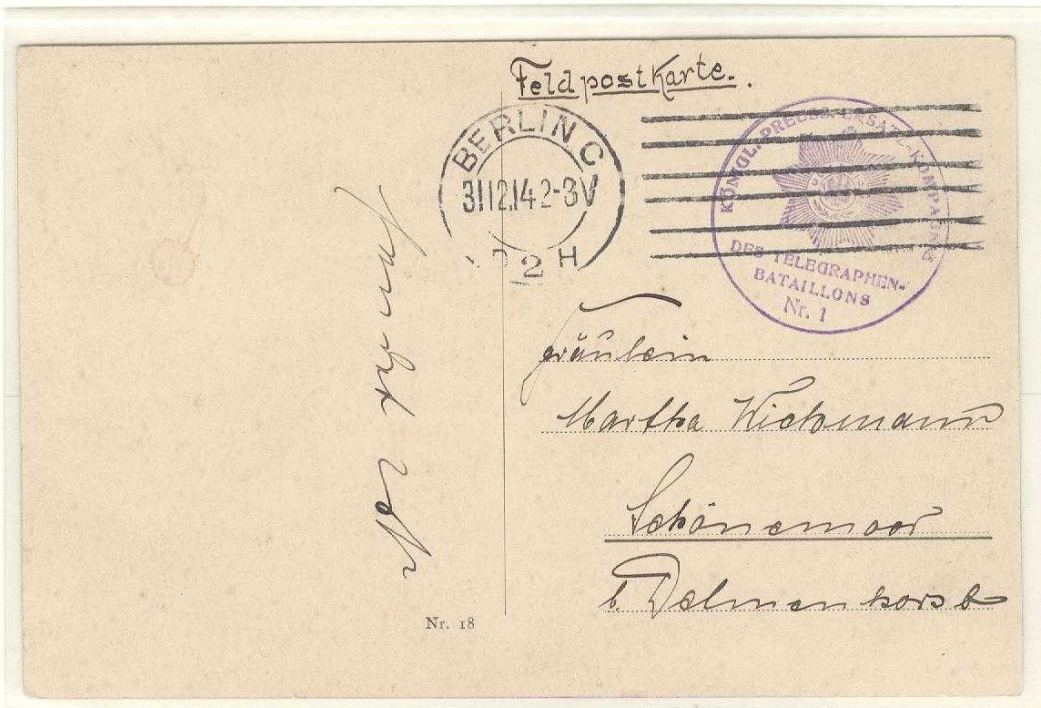 Feldpostkarte.
BERLIN C
31.12.14 2-3V
2 H
KÖNIGL. PREUSS. ERSATZ-KOMPAGNIE
DES TELEGRAPHEN-
BATAILLONS
Nr. 1
Fräulein
Martha Wichmann
Schönemoor
b. Delmenhorst
Nr. 18